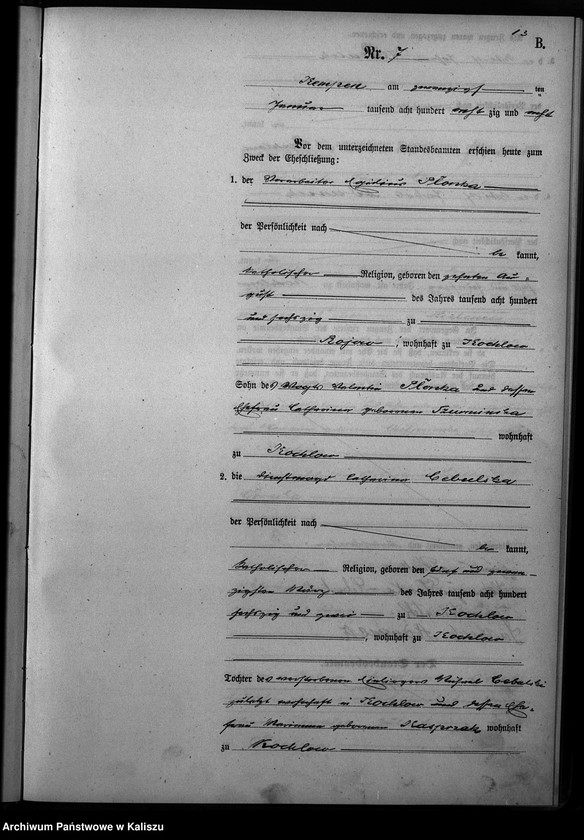 13
B.
Nr. 7
Kempen am zwanzigs ten
Januar tausend acht hundert acht zig und acht
Vor dem unterzeichneten Standesbeamten erschien heute zum
Zweck der Eheschließung:
1. der Vorarbeiter
der Persönlichkeit nach
be kannt,
katholischer Religion, geboren den zehnten Au-
gust des Jahres tausend acht hundert
und sechszig zu
Rojow, wohnhaft zu Kochlow
Sohn des Vogts Valentin und dessen
Ehefrau Catharina geborenen
wohnhaft
zu Kochlow
2. die Dienstmagd Catharina Cebulska
der Persönlichkeit nach
be kannt,
katholischer Religion, geboren den fünf und zwan-
zigsten März des Jahres tausend acht hundert
sechszig und zwei zu Kochlow
, wohnhaft zu Kochlow
Tochter des verstorbenen Einliegers Michael Cebulski
zuletzt wohnhaft in Kochlow und dessen Ehe-
frau Marianna geborenen Kasprzak wohnhaft
zu Kochlow
Archiwum Państwowe w Kaliszu